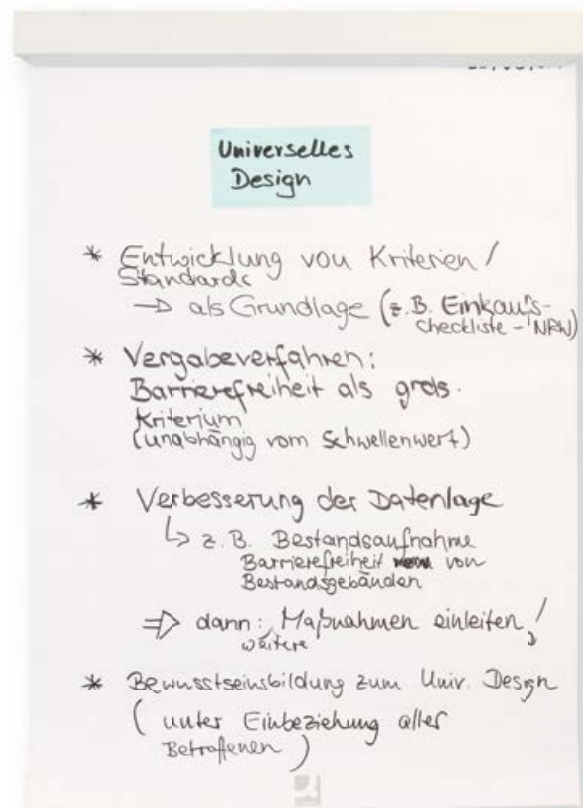 Universelles
Design
* Entwicklung von Kriterien /
Standards
→ als Grundlage (z.B. Einkaufs-
checkliste - NRW)
* Vergabeverfahren:
Barrierefreiheit als grds.
Kriterium
(unabhängig vom Schwellenwert)
* Verbesserung der Datenlage
↳ z.B. Bestandsaufnahme
Barrierefreiheit von
Bestandsgebäuden
⇒ dann: Maßnahmen einleiten!
weitere
* Bewusstseinsbildung zum Univ. Design
(unter Einbeziehung aller
Betroffenen)